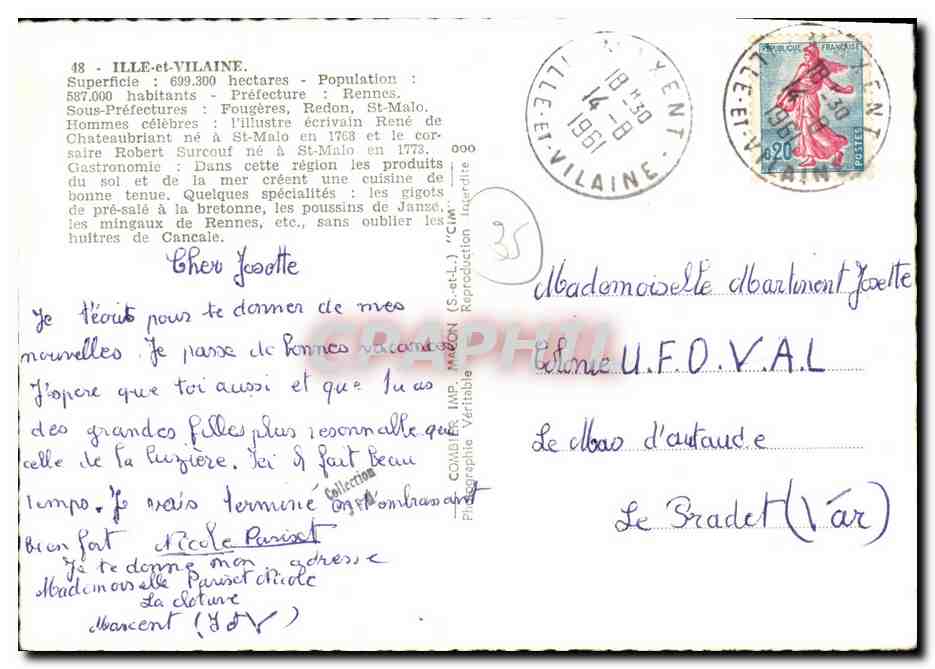 48 - ILLE-et-VILAINE.
Superficie : 699.300 hectares - Population :
587.000 habitants - Préfecture : Rennes.
Sous-Préfectures : Fougères, Redon, St-Malo.
Hommes célèbres : l'illustre écrivain René de
Chateaubriant né à St-Malo en 1768 et le cor-
saire Robert Surcouf né à St-Malo en 1773.
Gastronomie : Dans cette région les produits
du sol et de la mer créent une cuisine de
bonne tenue. Quelques spécialités : les gigots
de pré-salé à la bretonne, les poussins de Janzé,
les mingaux de Rennes, etc., sans oublier les
huîtres de Cancale.
Cher Josette
Je t'écris pour te donner de mes
nouvelles. Je passe de bonnes vacances
J'espere que toi aussi et que tu as
des grandes filles plus resonnalle que
celle de la Luzière. Ici il fait beau
temps. Je vais terminé en t'embrassant
bien fort Nicole Pariset
Je te donne mon adresse
Mademoiselle Pariset Nicole
La cloture
Maxent (I et V)
COMBIER IMP. MACON (S.-et-L.) "CIM"
Photographie Véritable Reproduction Interdite
ooo
35
Collection
CPAPHIL
MAXENT
18 H 30
14 - 8
1961
ILLE-ET-VILAINE
REPUBLIQUE FRANÇAISE
0,20
POSTES
MAXENT
18 H 30
14 - 8
1961
ILLE-ET-VILAINE
Mademoiselle Martinent Josette
Colonie U.F.O.V.A.L
Le Mas d'autaude
Le Pradet (Var)